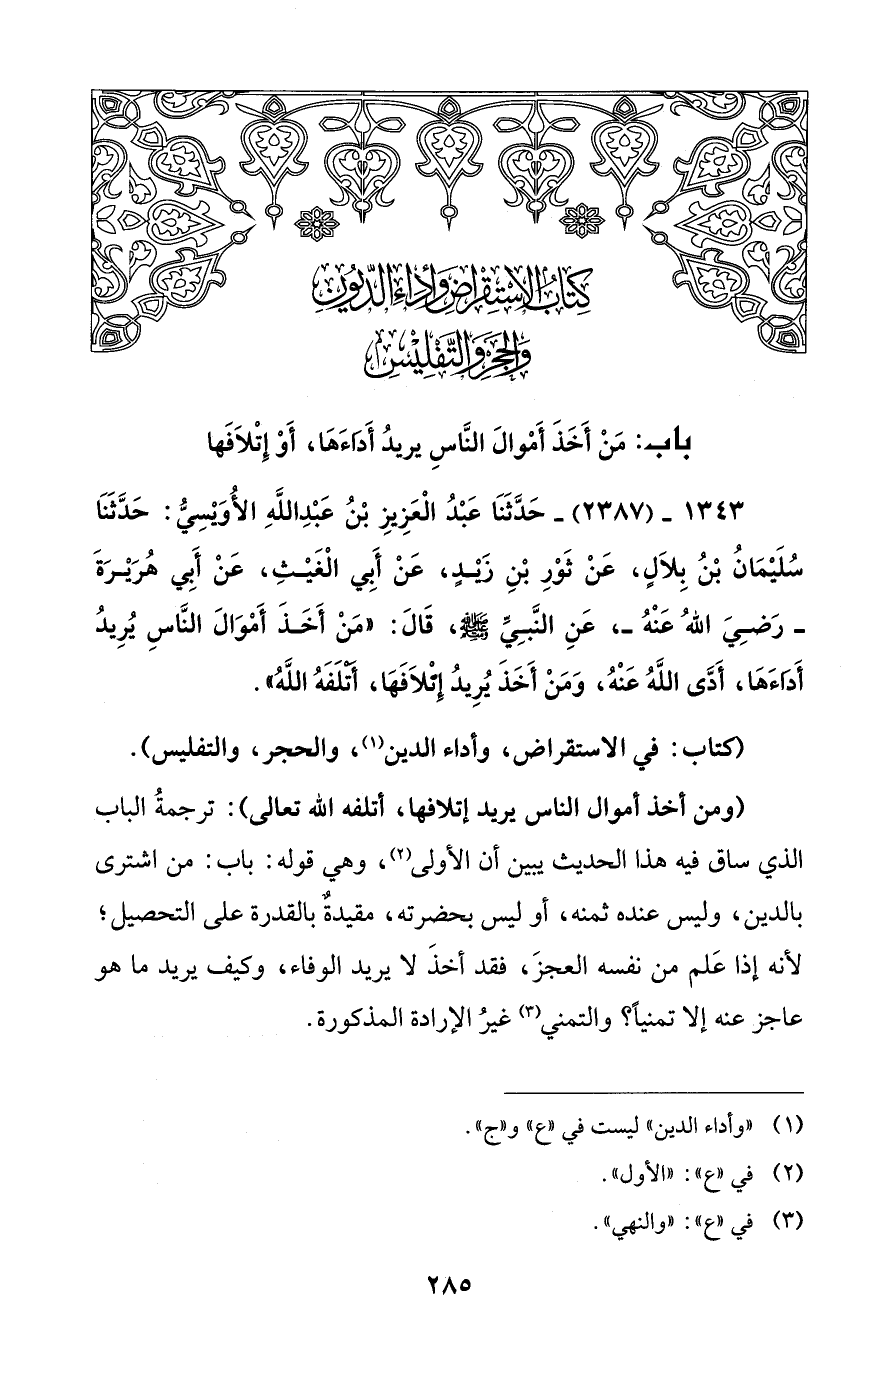 كِتَابُ الِاسْتِقْرَاضِ وَأَدَاءِ الدُّيُونِ
وَالْحَجْرِ وَالتَّفْلِيسِ
باب: مَنْ أَخَذَ أَمْوالَ النَّاسِ يريدُ أَدَاءَهَا، أَوْ إِتْلاَفَها
١٣٤٣ - (٢٣٨٧) - حَدَّثَنَا عَبْدُ الْعَزِيزِ بْنُ عَبْدِاللَّهِ الأُوَيْسِيُّ: حَدَّثَنَا
سُلَيْمَانُ بْنُ بِلاَلٍ، عَنْ ثَوْرِ بْنِ زَيْدٍ، عَنْ أَبِي الْغَيْثِ، عَنْ أَبِي هُرَيْرَةَ
- رَضِيَ اللهُ عَنْهُ -، عَنِ النَّبِيِّ ﷺ، قَالَ: «مَنْ أَخَذَ أَمْوَالَ النَّاسِ يُرِيدُ
أَدَاءَهَا، أَدَّى اللَّهُ عَنْهُ، وَمَنْ أَخَذَ يُرِيدُ إِتْلاَفَهَا، أَتْلَفَهُ اللَّهُ».
(كتاب: في الاستقراض، وأداء الدين(١)، والحجر، والتفليس).
(ومن أخذ أموال الناس يريد إتلافها، أتلفه الله تعالى): ترجمةُ الباب
الذي ساق فيه هذا الحديث يبين أن الأولى(٢)، وهي قوله: باب: من اشترى
بالدين، وليس عنده ثمنه، أو ليس بحضرته، مقيدةٌ بالقدرة على التحصيل؛
لأنه إذا عَلم من نفسه العجزَ، فقد أخذَ لا يريد الوفاء، وكيف يريد ما هو
عاجز عنه إلا تمنياً؟ والتمني(٣) غيرُ الإرادة المذكورة.
(١) «وأداء الدين» ليست في «ع» و«ج».
(٢) في «ع»: «الأول».
(٣) في «ع»: «والنهي».
٢٨٥